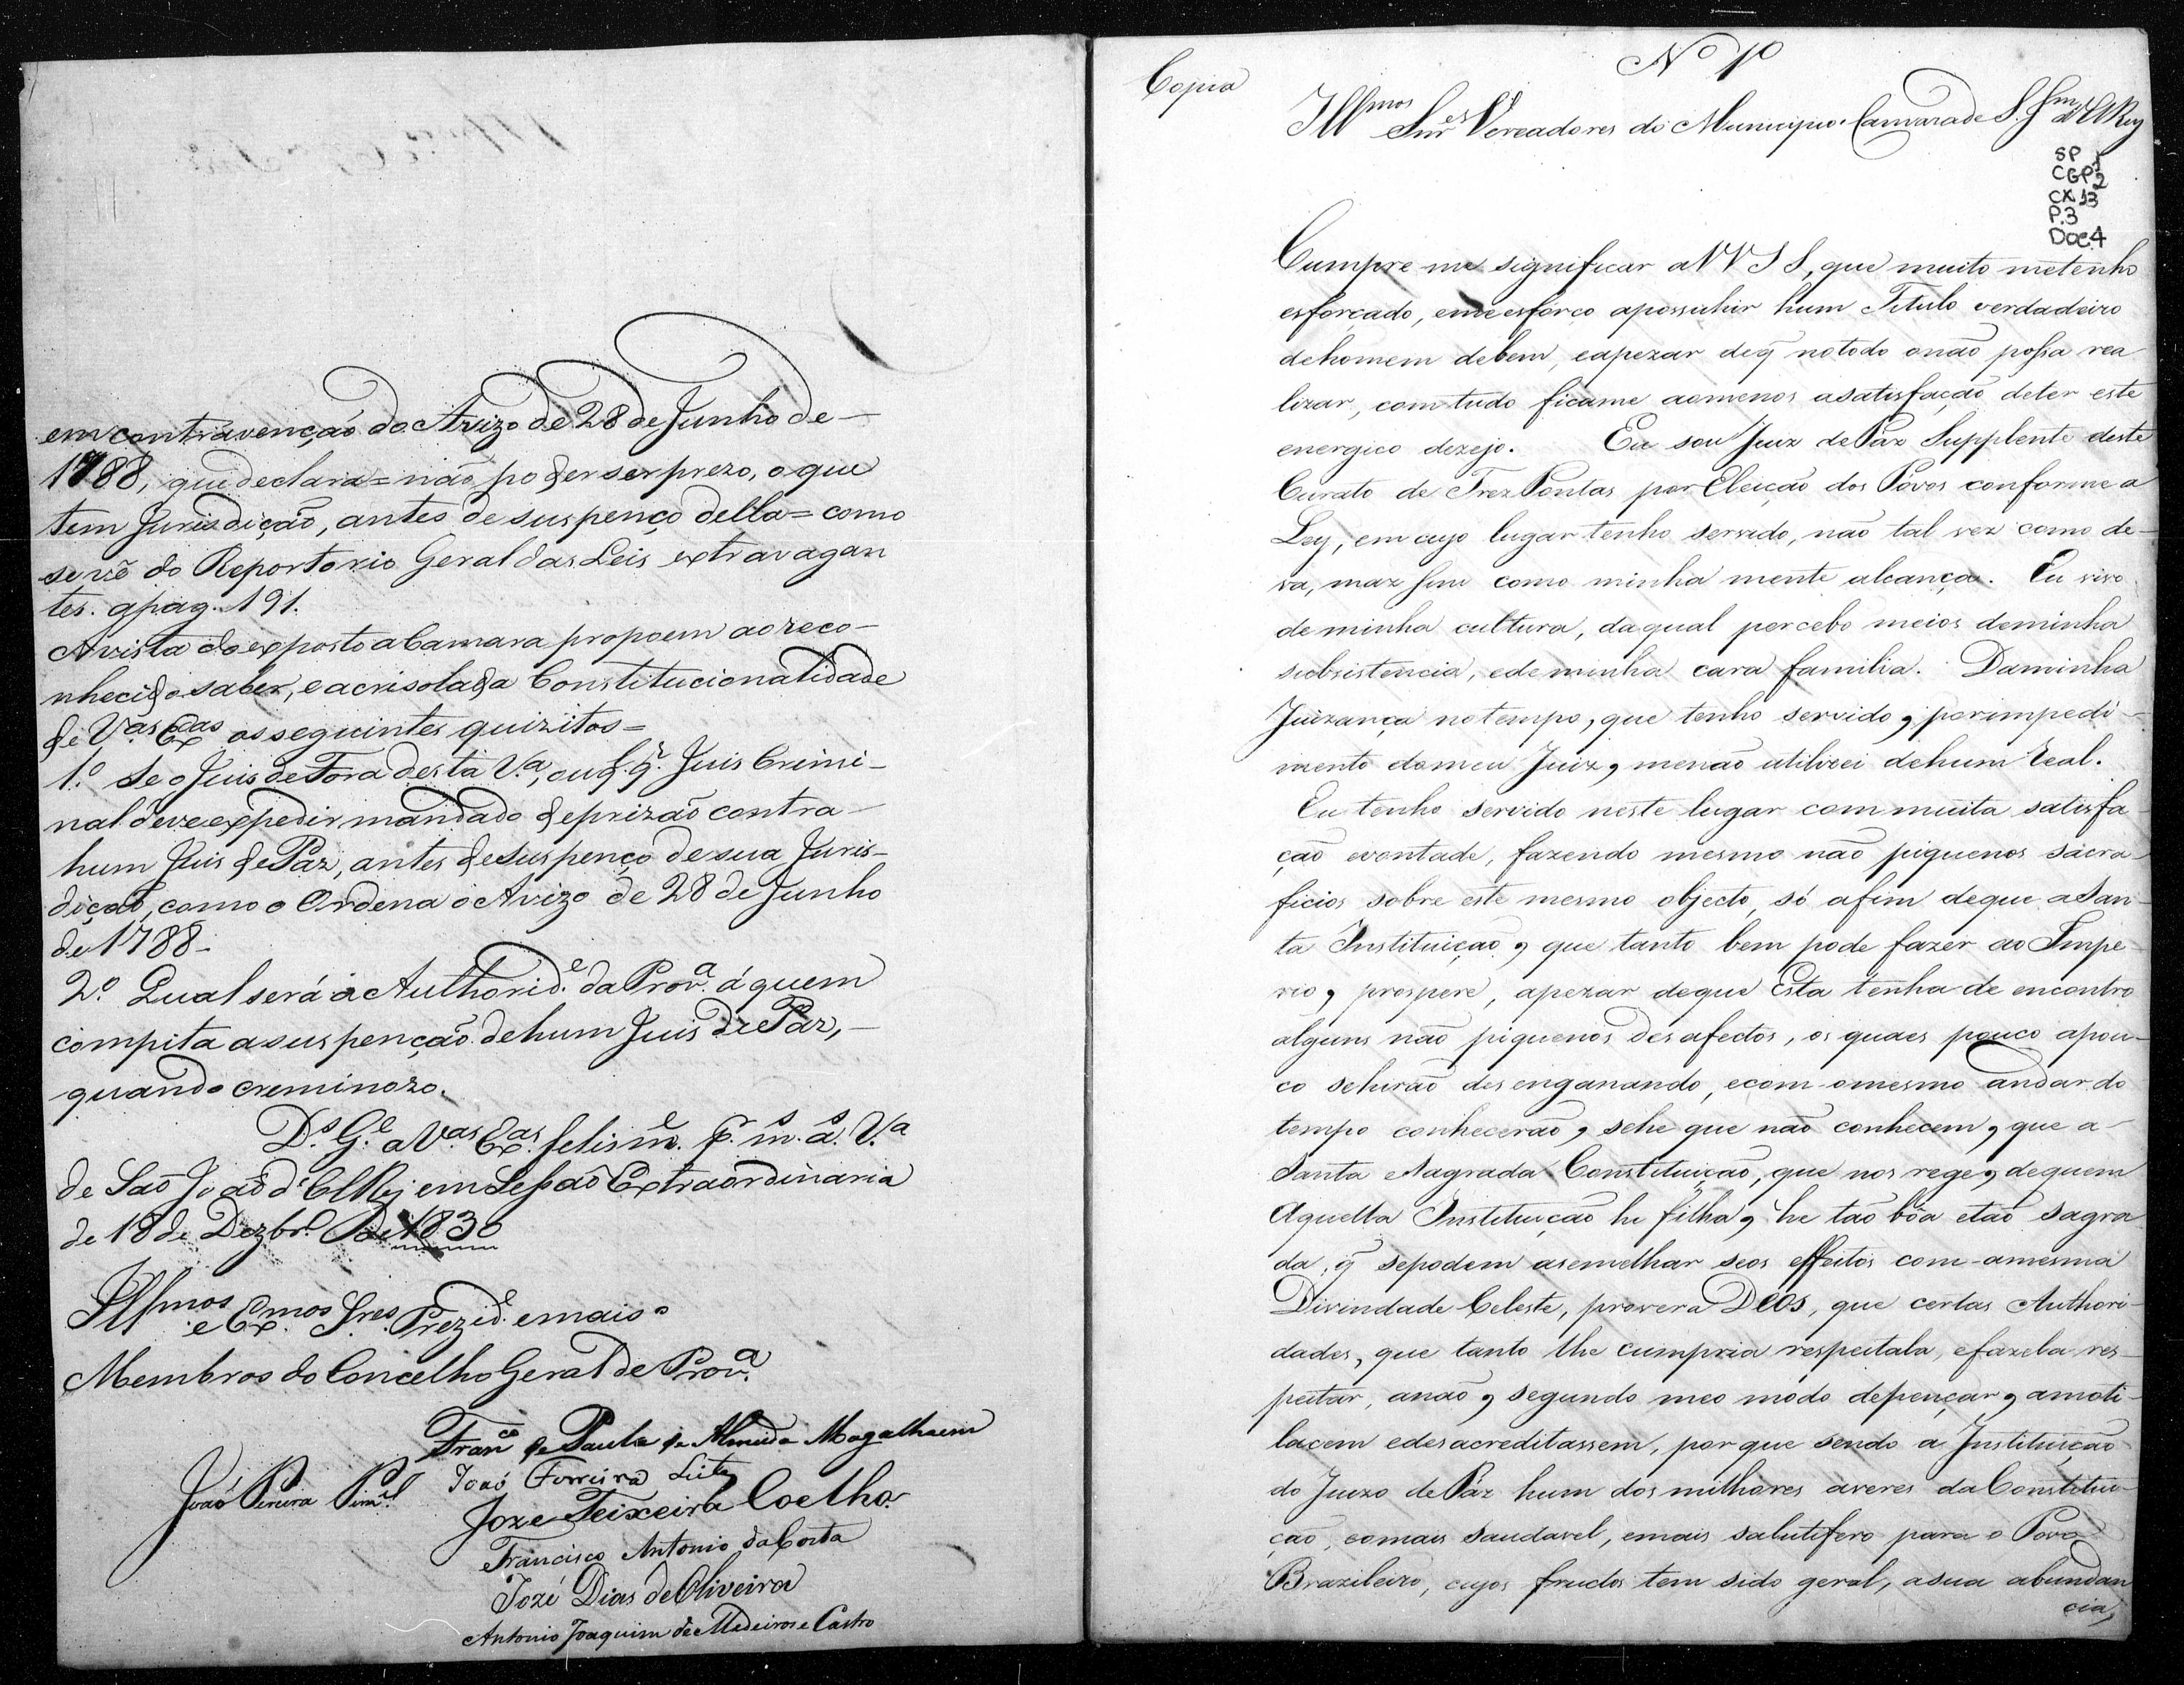 em contravenção do Avizo de 28 de Junho de-
1788, que declara = não poder ser prezo, o que
tem Jurisdição, antes de suspenço della = como
se vê do Reportorio Geral das Leis extravagan
tes. a pag. 191.
A vista do exposto a Camara propoem ao reco-
nhecido saber, e acrisolada Constitucionalidade
de V.as Ex.as os seguintes quizitos =
1.º Se o Juis de Fora desta V.a, ou q.l q.r Juis Crimi-
nal deve expedir mandado de prizão contra-
hum Juis de Paz, antes de suspenço de sua Juris-
dição, como o Ordena o Avizo de 28 de Junho
de 1788-
2.º Qual será a Authorid.e da Prov.a á quem
compita a suspenção de hum Juis de Paz,-
quando creminozo.
D.s G.e a V.as Ex.as felism.e p.r m.s a.s V.a
de São João d'ElRej em Sessão Extraordinaria
de 18 de Dezbr.o de 1830
Ill.mos e Ex.mos Sres Prezid.e e mais
Membros do Concelho Geral de Prov.a
Fran.co de Paula de Almeida Magalhaens
João Pereira Pim.el
João Ferreira Leite
Joze Teixeira Coelho
Francisco Antonio da Costa
Jozé Dias de Oliveira
Antonio Joaquim de Medeiros e Castro
Copia
Nº 1º
Ill.mos Snr.es Vereadores do Municipio Camara de S. J.m d'ElRey
SP 1
CGP 2
CX 13
P.3
Doc.4
Cumpre me significar a VVSS, que muito me tenho
esforçado, e me esforço a possuhir hum Titulo verdadeiro
de homem de bem, e apezar de q̃ no todo o não possa rea
lizar, com tudo ficame ao menos a satisfação de ter este
energico dezejo. Eu sou Juiz de Paz Supplente deste
Curato de Trez Pontas por Eleição dos Povos conforme a
Ley, em cujo lugar tenho servido, não tal vez como de-
va, maz sim como minha mente alcança. Eu vivo
de minha cultura, da qual percebo meios de minha
subsistencia, e de minha cara familia. Da minha
Juizança no tempo, que tenho servido, por impedi-
mento do meu Juiz, me não utilizei de hum real.
Eu tenho servido neste lugar com muita satisfa
ção e vontade, fazendo mesmo não piquenos sacra-
ficios sobre este mesmo objecto, só a fim de que a San-
ta Instituição, que tanto bem pode fazer ao Impe-
rio, prospere, apezar de que Esta tenha de encontro
alguns não piquenos desafectos, os quaes pouco a pou-
co se hirão des enganando, e com o mesmo andar do
tempo conhecerão, se he que não conhecem, que a-
Santa e Sagrada Constituição, que nos rege, de quem
Aquella Instituição he filha, he tão bôa e tão sagra
da, q̃ se podem asemelhar seos effeitos com a mesma
Divindade Celeste, provera DEOS, que certas Authori-
dades, que tanto lhe cumpria respeitala, e fazela res-
peitar, a não, segundo meo modo de pençar, a moti-
lacem e desacreditassem, por que sendo a Instituição
do Juizo de Páz hum dos milhores averes da Constitui-
ção, e o mais saudavel, e mais salutifero para o Povo
Brazileiro, cujos fructos tem sido geral, a sua abundan
cia,